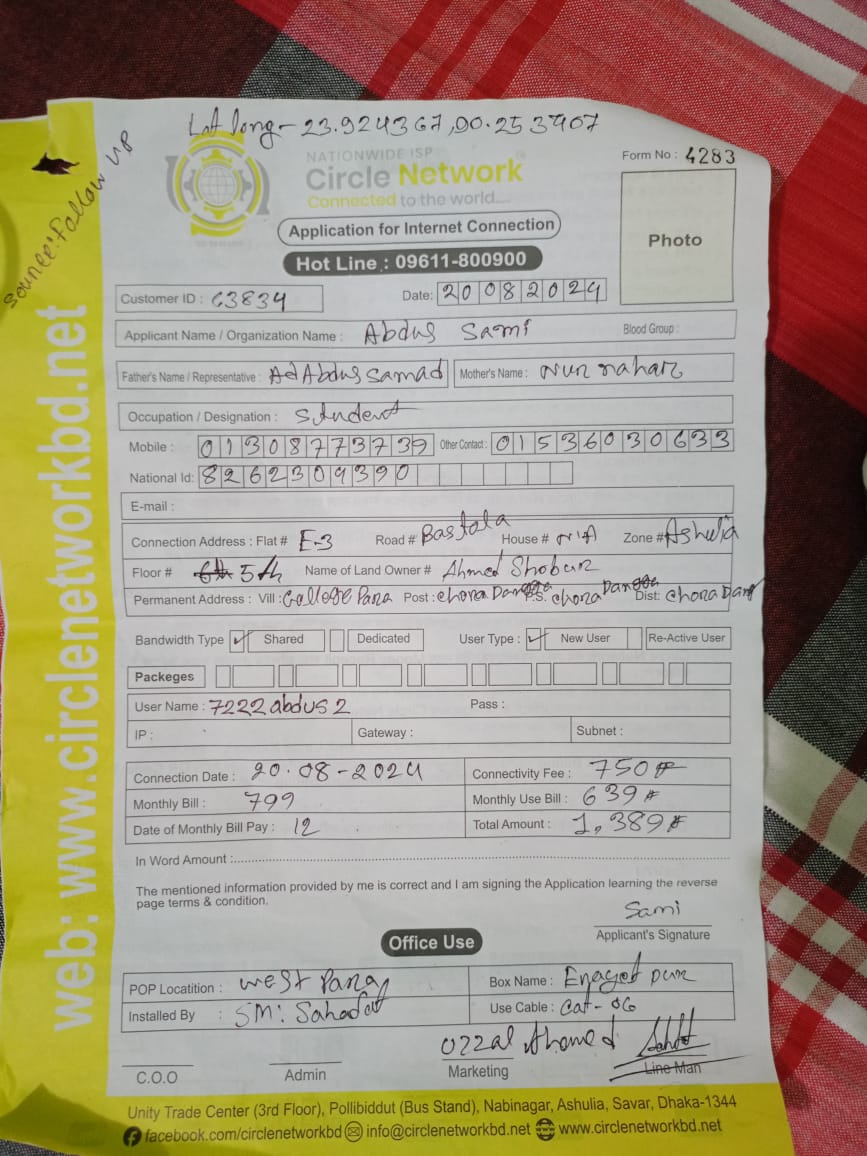 Lat long - 23.924367,90.253907
Source: Follow UP
NATIONWIDE ISP
Circle Network
Connected to the world....
Form No : 4283
Application for Internet Connection
Hot Line : 09611-800900
Photo
Customer ID : 63834 Date: 20082024
Applicant Name / Organization Name : Abdus Sami Blood Group :
Father's Name / Representative : Ad Abdus samad Mother's Name : Nur nahar
Occupation / Designation : Student
Mobile : 01308773739 Other Contact : 01536030633
National Id: 8262309390
E-mail :
Connection Address : Flat # E-3 Road # Bastala House # N/A Zone # Ashulia
Floor # 5th Name of Land Owner # Ahmed Shobur
Permanent Address : Vill : College Para Post : chora Dangga P.S. chora Dangga Dist: chora Dang
Bandwidth Type ✓ Shared Dedicated User Type : ✓ New User Re-Active User
Packeges
User Name : 7222abdus2 Pass :
IP : Gateway : Subnet :
Connection Date : 20.08-2024 Connectivity Fee : 750
Monthly Bill : 799 Monthly Use Bill : 639
Date of Monthly Bill Pay : 12 Total Amount : 1,389
In Word Amount :
The mentioned information provided by me is correct and I am signing the Application learning the reverse
page terms & condition.
Sami
Applicant's Signature
Office Use
POP Locatition : West Para Box Name : Enayet pur
Installed By : SM: Sahadat Use Cable : Cat-06
Ozzal Ahomed
C.O.O Admin Marketing Line Man
Unity Trade Center (3rd Floor), Pollibiddut (Bus Stand), Nabinagar, Ashulia, Savar, Dhaka-1344
facebook.com/circlenetworkbd info@circlenetworkbd.net www.circlenetworkbd.net
web: www.circlenetworkbd.net